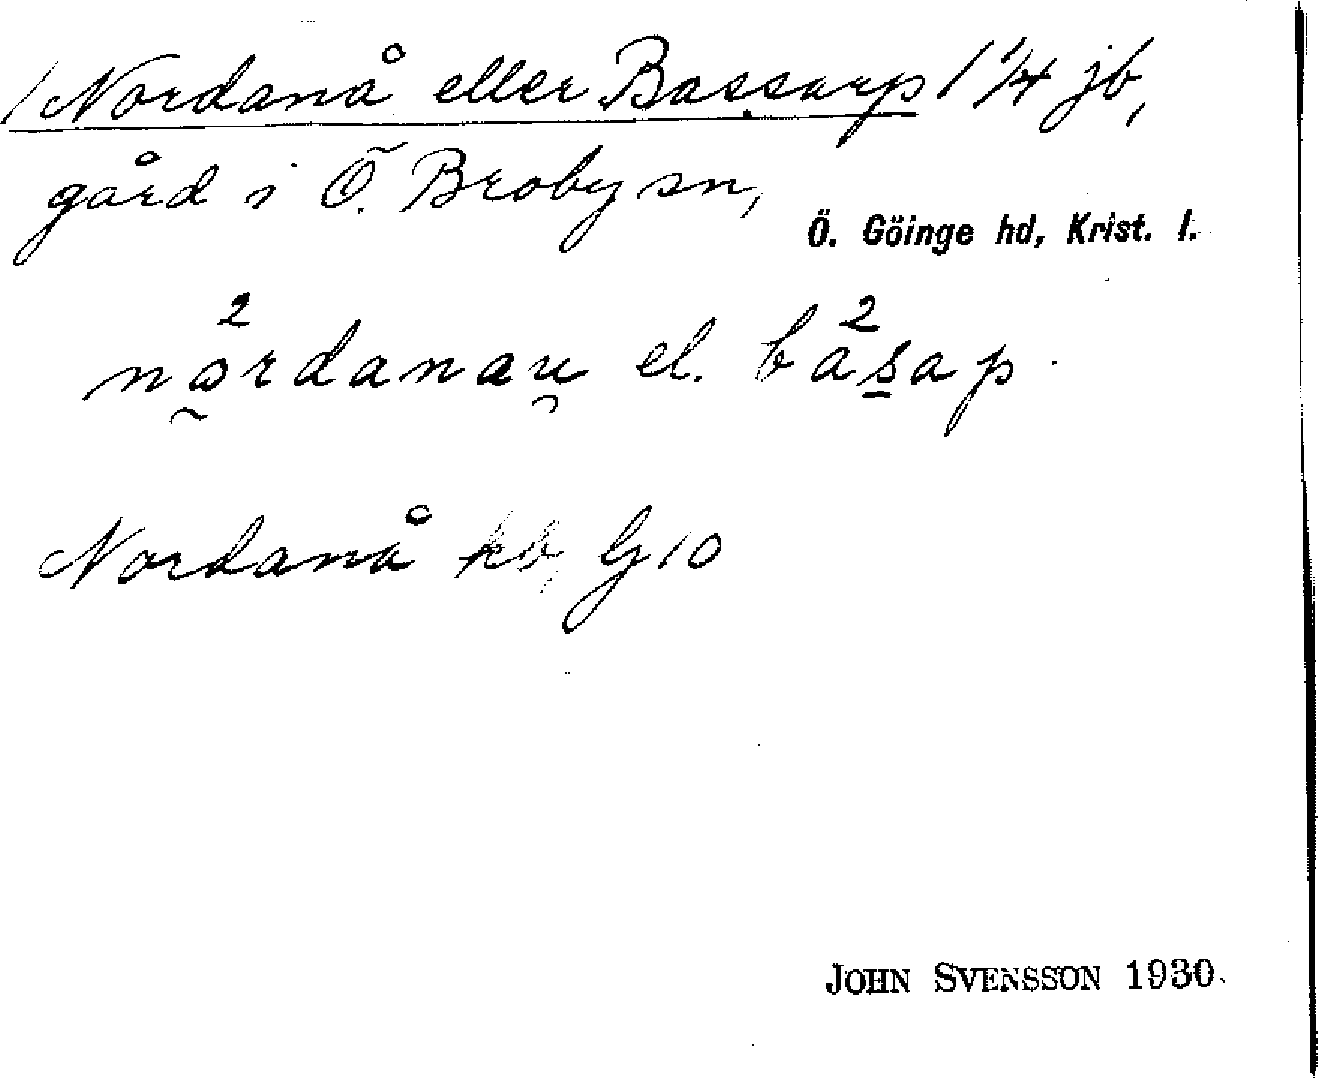 /Nordanå eller Bassarp/ 1/4 jb,
gård i Ö. Broby sn,
Ö. Göinge hd, Krist. l.
nordanau el. basap.
Nordanå kb, G10
JOHN SVENSSON 1930.